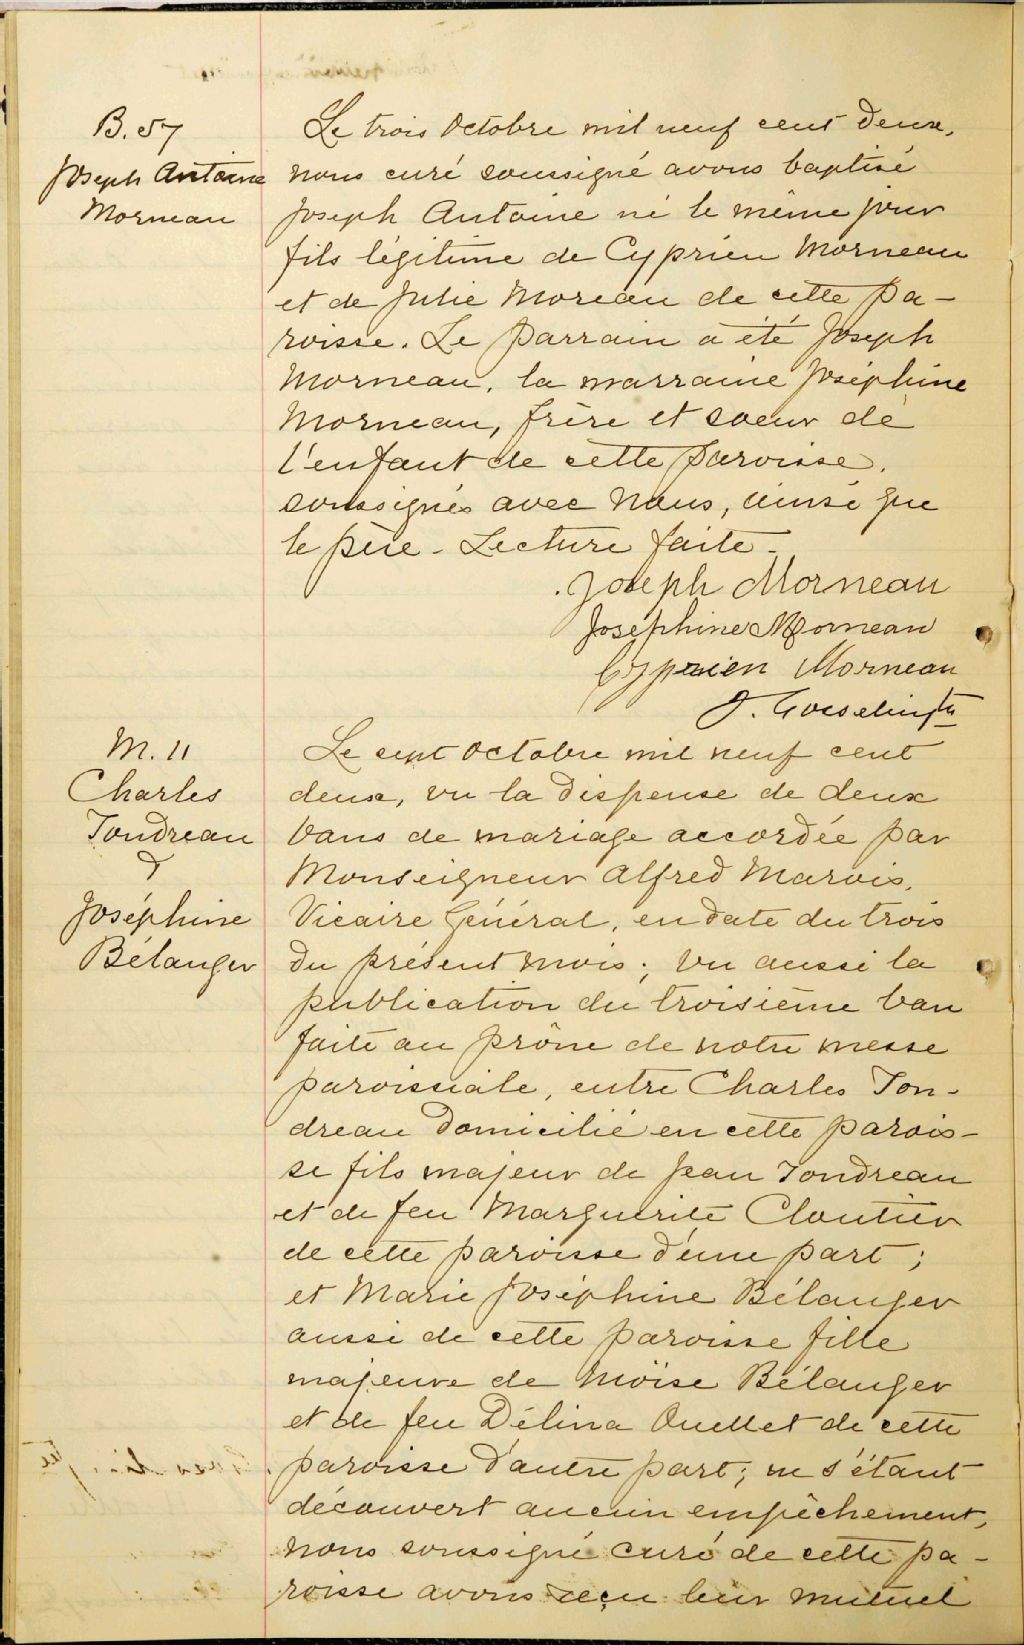 B. 57
Joseph Antoine
Morneau
Le trois Octobre mil neuf cent deux,
nous curé soussigné avons baptisé
Joseph Antoine né le même jour
fils légitime de Cyprien Morneau
et de Julie Moreau de cette pa-
roisse. Le parrain a été Joseph
Morneau, la marraine Joséphine
Morneau, frère et soeur de
l'enfant de cette paroisse,
soussignés avec nous, ainsi que
le père - Lecture faite -
Joseph Morneau
Josephine Morneau
Cyprien Morneau
J. Gosselin, ptre
M. 11
Charles
Tondreau
&
Joséphine
Bélanger
Le sept Octobre mil neuf cent
deux, vu la dispense de deux
bans de mariage accordée par
Monseigneur Alfred Marois,
Vicaire Général, en date du trois
du présent mois; vu aussi la
publication du troisième ban
faite au prône de notre messe
paroissiale, entre Charles Ton-
dreau domicilié en cette parois-
se fils majeur de Jean Tondreau
et de feu Marguerite Cloutier
de cette paroisse d'une part;
et Marie Joséphine Bélanger
aussi de cette paroisse fille
majeure de Moïse Bélanger
et de feu Délina Ouellet de cette
paroisse d'autre part; ne s'étant
découvert aucun empêchement,
nous soussigné curé de cette pa-
roisse avons reçu leur mutuel